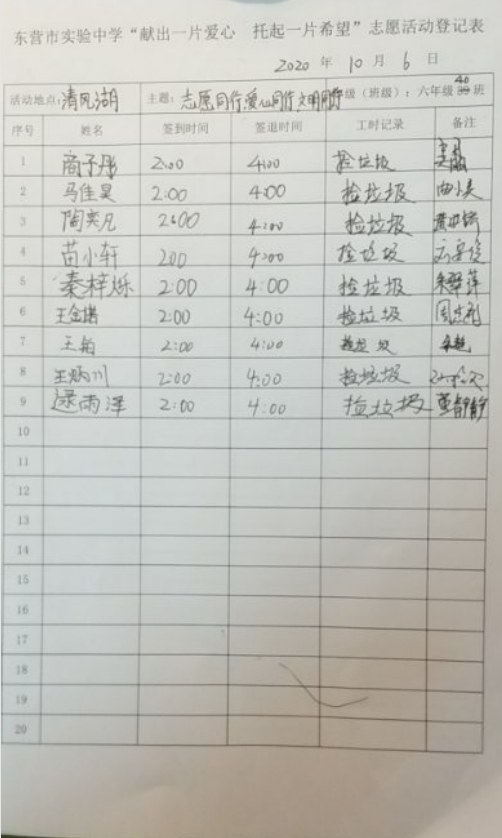 东营市实验中学“献出一片爱心 托起一片希望”志愿活动登记表
2020 年 10 月 6 日
活动地点:清风湖 主题:志愿同行,爱心同行文明同行 级(班级):六年级 40 班
序号 姓名 签到时间 签退时间 工时记录 备注
1 商子彤 2:00 4:00 捡垃圾
2 马佳昊 2:00 4:00 捡垃圾
3 陶奕凡 2:00 4:00 捡垃圾
4 苗小轩 200 4:00 捡垃圾
5 秦梓烁 2:00 4:00 捡垃圾
6 王金 2:00 4:00 捡垃圾
7 王 2:00 4:00 捡垃圾
8 王炳川 2:00 4:00 捡垃圾
9 逯雨泽 2:00 4:00 捡垃圾 董静静
10
11
12
13
14
15
16
17
18
19
20